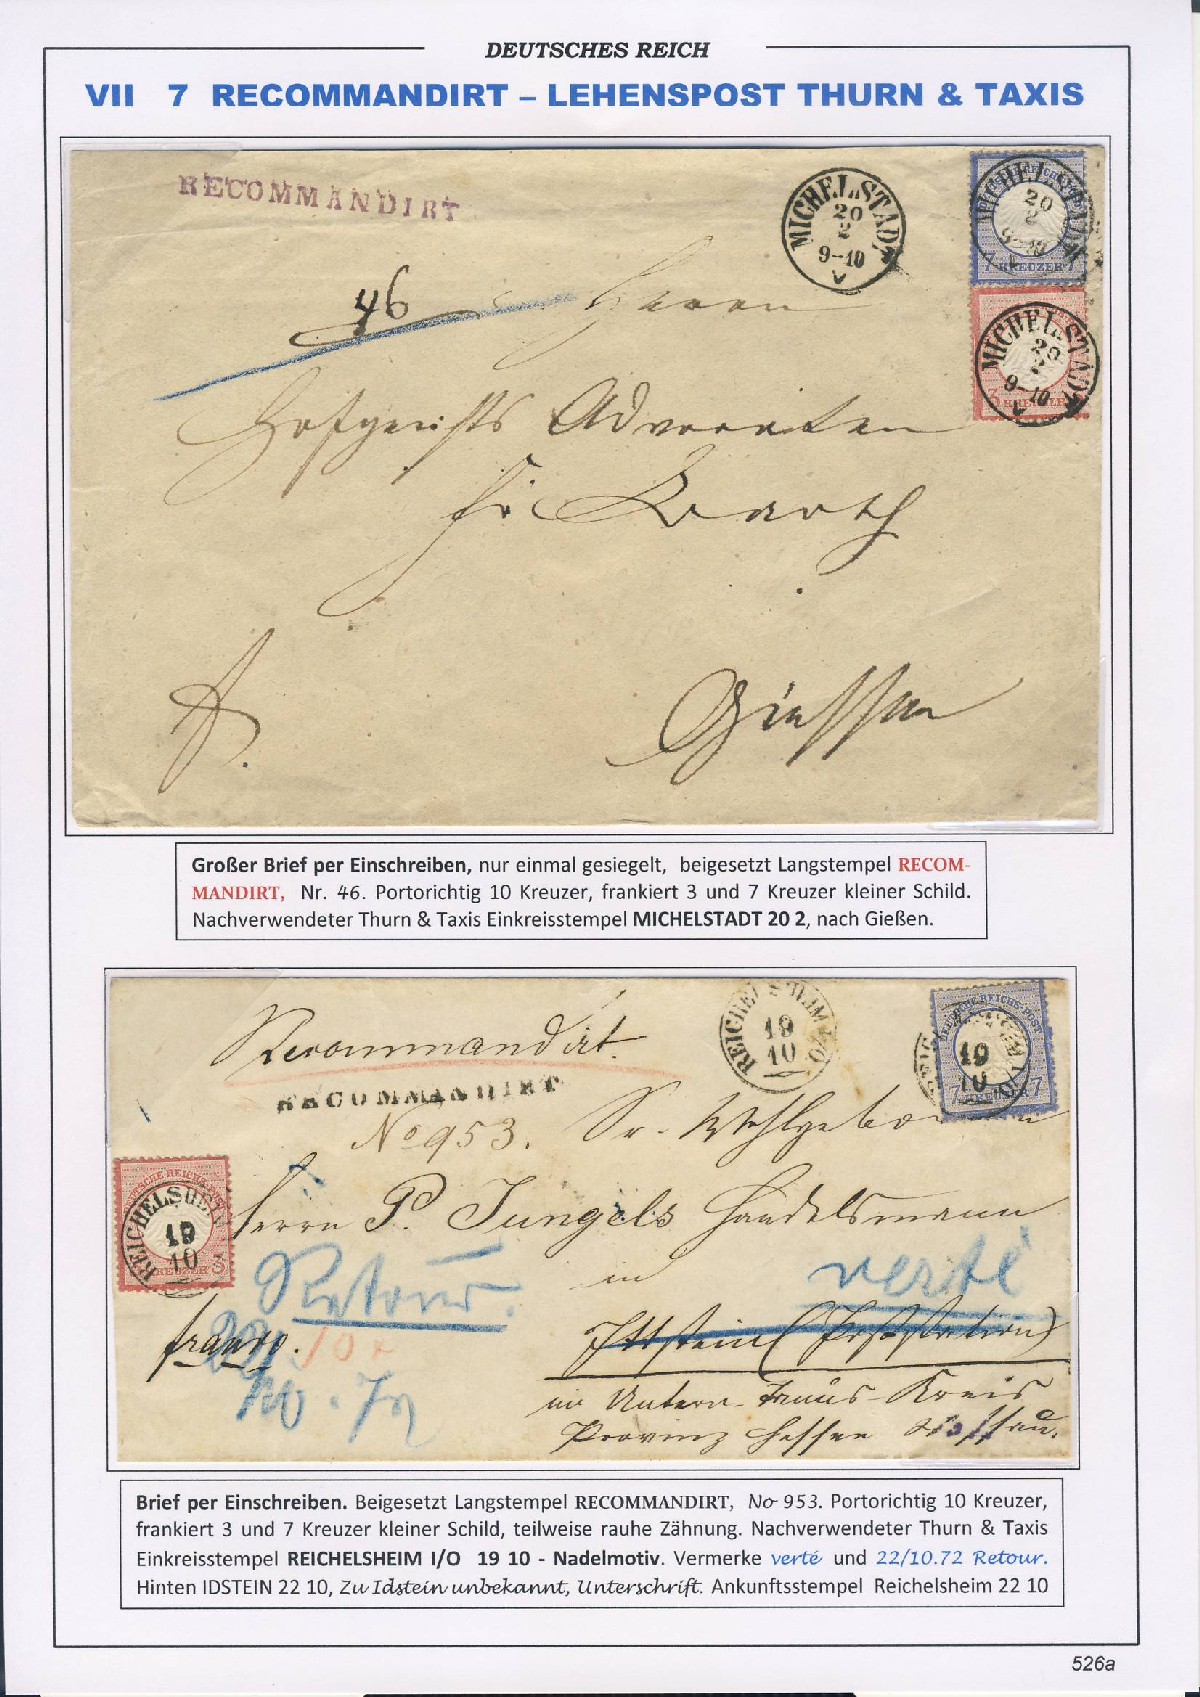 DEUTSCHES REICH
VII 7 RECOMMANDIRT – LEHENSPOST THURN & TAXIS
RECOMMANDIRT
MICHELSTADT
20
2
9-10
MICHELSTADT
20
2
9-10
7 KREUZER 7
MICHELSTADT
20
2
9-10
3 KREUZER
46
Herrn
Hofgerichts Advocaten
Giessen
Großer Brief per Einschreiben, nur einmal gesiegelt, beigesetzt Langstempel RECOM-
MANDIRT, Nr. 46. Portorichtig 10 Kreuzer, frankiert 3 und 7 Kreuzer kleiner Schild.
Nachverwendeter Thurn & Taxis Einkreisstempel MICHELSTADT 20 2, nach Gießen.
Recommandirt.
RECOMMANDIRT
REICHELSHEIM I/O
19
10
DEUTSCHE REICHS-POST
19
10
7 KREUZER 7
No 953. Sr. Wohlgeboren
DEUTSCHE REICHS-POST
REICHELSHEIM
19
10
KREUZER 3
Herrn P. Jungels Handelsmann
in
Retour. verté
Ittstein (Poststation)
franco.
22/10
10. 72
im Untern-Taunus-Kreis
Provinz Hessen Nassau.
Brief per Einschreiben. Beigesetzt Langstempel RECOMMANDIRT, No 953. Portorichtig 10 Kreuzer,
frankiert 3 und 7 Kreuzer kleiner Schild, teilweise rauhe Zähnung. Nachverwendeter Thurn & Taxis
Einkreisstempel REICHELSHEIM I/O 19 10 - Nadelmotiv. Vermerke verté und 22/10.72 Retour.
Hinten IDSTEIN 22 10, Zu Idstein unbekannt, Unterschrift. Ankunftsstempel Reichelsheim 22 10
526a